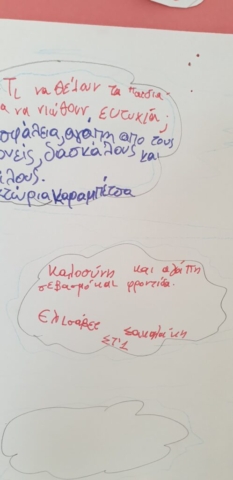 Τι να θέλουν τα παιδιά
α να νιώθουν ευτυχία;
σφάλεια, αγάπη απο τους
ονείς, δασκάλους και
ίλους.
Καραμπέτσα
Καλοσύνη και αγάπη
σεβασμό και φροντίδα.
Ελισάβετ
ΣΤ'1